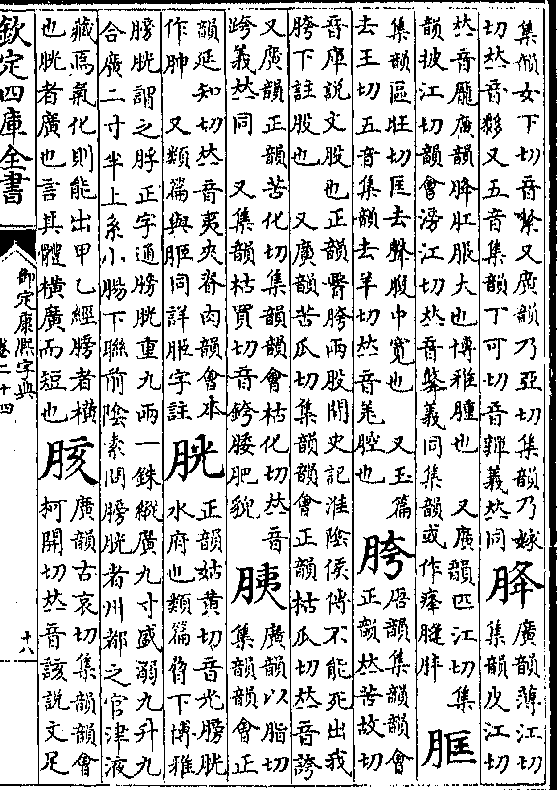 集韻女下切音絮又廣韻乃亞切集韻乃嫁
切𠀤音又五音集韻丁可切音嚲義𠀤同
胮
廣韻薄江切
集韻皮江切
𠀤音龐廣韻胮肛脹大也博雅腫也　又廣韻匹江切集
韻披江切韻會滂江切𠀤音義同集韻或作膖肨
集韻區旺切匡去聲腹中寬也　又玉篇
去王切五音集韻去羊切𠀤音羌腔也
胯
唐韻集韻韻會
正韻𠀤苦故切
音庫說文股也正韻腎胯兩股間史記淮陰侯傳不能死出我
胯下註股也　又廣韻苦瓜切集韻韻會正韻枯瓜切𠀤音誇
又廣韻正韻苦化切集韻韻會枯化切𠀤音
跨義𠀤同　又集韻枯買切音銙腰肥貌
胰
廣韻以脂切
集韻韻會正
韻延知切𠀤音夷夾脊肉韻會本
作胂　又類篇與同詳字註
胱
正韻姑黃切音光膀胱
水府也類篇脅下博雅
膀胱謂之脬正字通膀胱重九兩一銖縱廣九寸盛溺九升九
合廣二寸半上系小腸下聯前陰素問膀胱者州都之官津液
藏焉氣化則能出甲乙經膀者橫
也胱者廣也言其體橫廣而短也
胲
廣韻古哀切集韻韻會
柯開切𠀤音該說文足
欽定四庫全書
御定康熙字典
卷二十四
十八